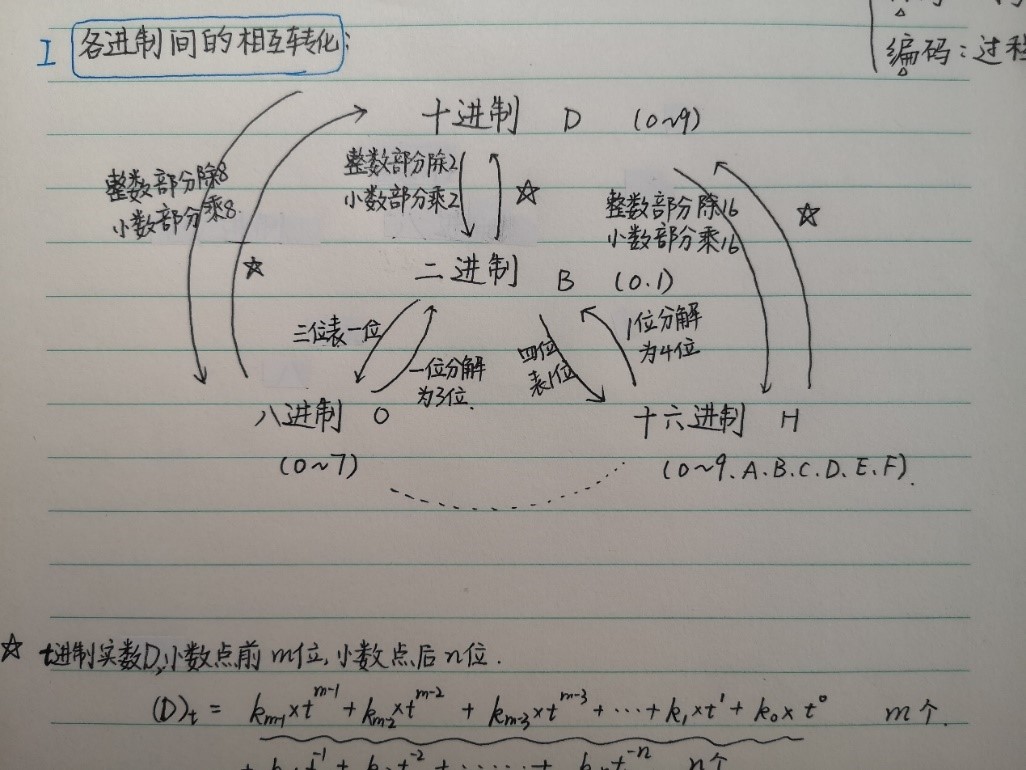 I 各进制间的相互转化:
编码:过程
十进制 D (0~9)
整数部分除8
小数部分乘8
整数部分除2
小数部分乘2
☆
整数部分除16
小数部分乘16
☆
☆
二进制 B (0.1)
三位表一位
一位分解
为3位.
四位
表1位
1位分解
为4位
八进制 O
(0~7)
十六进制 H
(0~9、A、B、C、D、E、F).
☆ t进制实数D,小数点前m位,小数点后n位.
(D)t = km-1×t^m-1 + km-2×t^m-2 + km-3×t^m-3 + ... + k1×t^1 + k0×t^0 m个.
t^-1 + t^-2 + ...... + t^-n n个